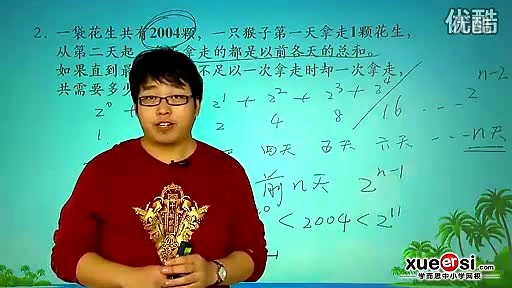 优酷
2. 一袋花生共有2004颗，一只猴子第一天拿走1颗花生，
从第二天起 拿走的都是以前各天的总和。
如果直到最 不足以一次拿走时却一次拿走，
共需要多少
2⁰ 2¹ + 2² + 2³ + 2ⁿ⁻²
1 2 4 8 16
四天 五天 六天 n天
前n天 2ⁿ⁻¹
< 2004 < 2¹¹
xueersi.com
学而思中小学网校